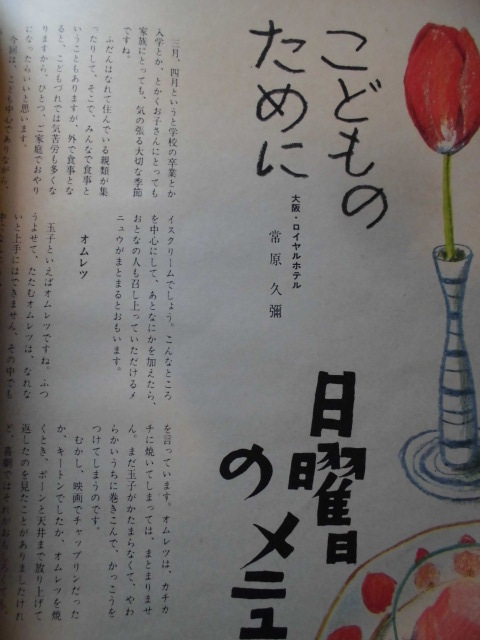 こどもの
ために
大阪・ロイヤルホテル
常原久彌
日曜日
のメニュ
三月、四月というと学校の卒業とか
入学とか、とかくお子さんにとっても
家族にとっても、気の張る大切な季節
ですね。
ふだんはなれて住んでいる親類が集
ったりして、そこで、みんなで食事と
いうこともありますが、外で食事とな
ると、こどもづれでは気苦労も多くな
りますから、ひとつ、ご家庭でおやり
になったらいいと思います。
今回は、こども中心でありながら、
イスクリームでしょう。こんなところ
を中心にして、あとなにかを加えたら、
おとなの人も召し上っていただけるメ
ニュウがまとまるとおもいます。
オムレツ
玉子といえばオムレツですね。ふつ
うよせて、たたむオムレツは、なれな
いと上手にはできません。その中でも
を言っています。オムレツは、ガチカ
チに焼いてしまっては、まとまりませ
ん。まだ玉子がかたまらなくて、やわ
らかいうちに巻きこんで、かっこうを
つけてしまうのです。
むかし、映画でチャップリンだった
か、キートンでしたか、オムレツを焼
くとき、ポーンと天井まで放り上げて
返したのを見たことがありましたけれ
ど、喜劇ではそれがおもしろくても、